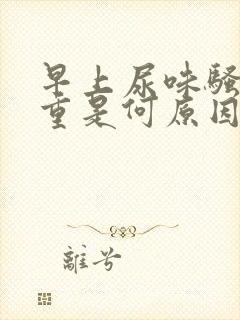 早上尿味骚
重是何原因
离兮